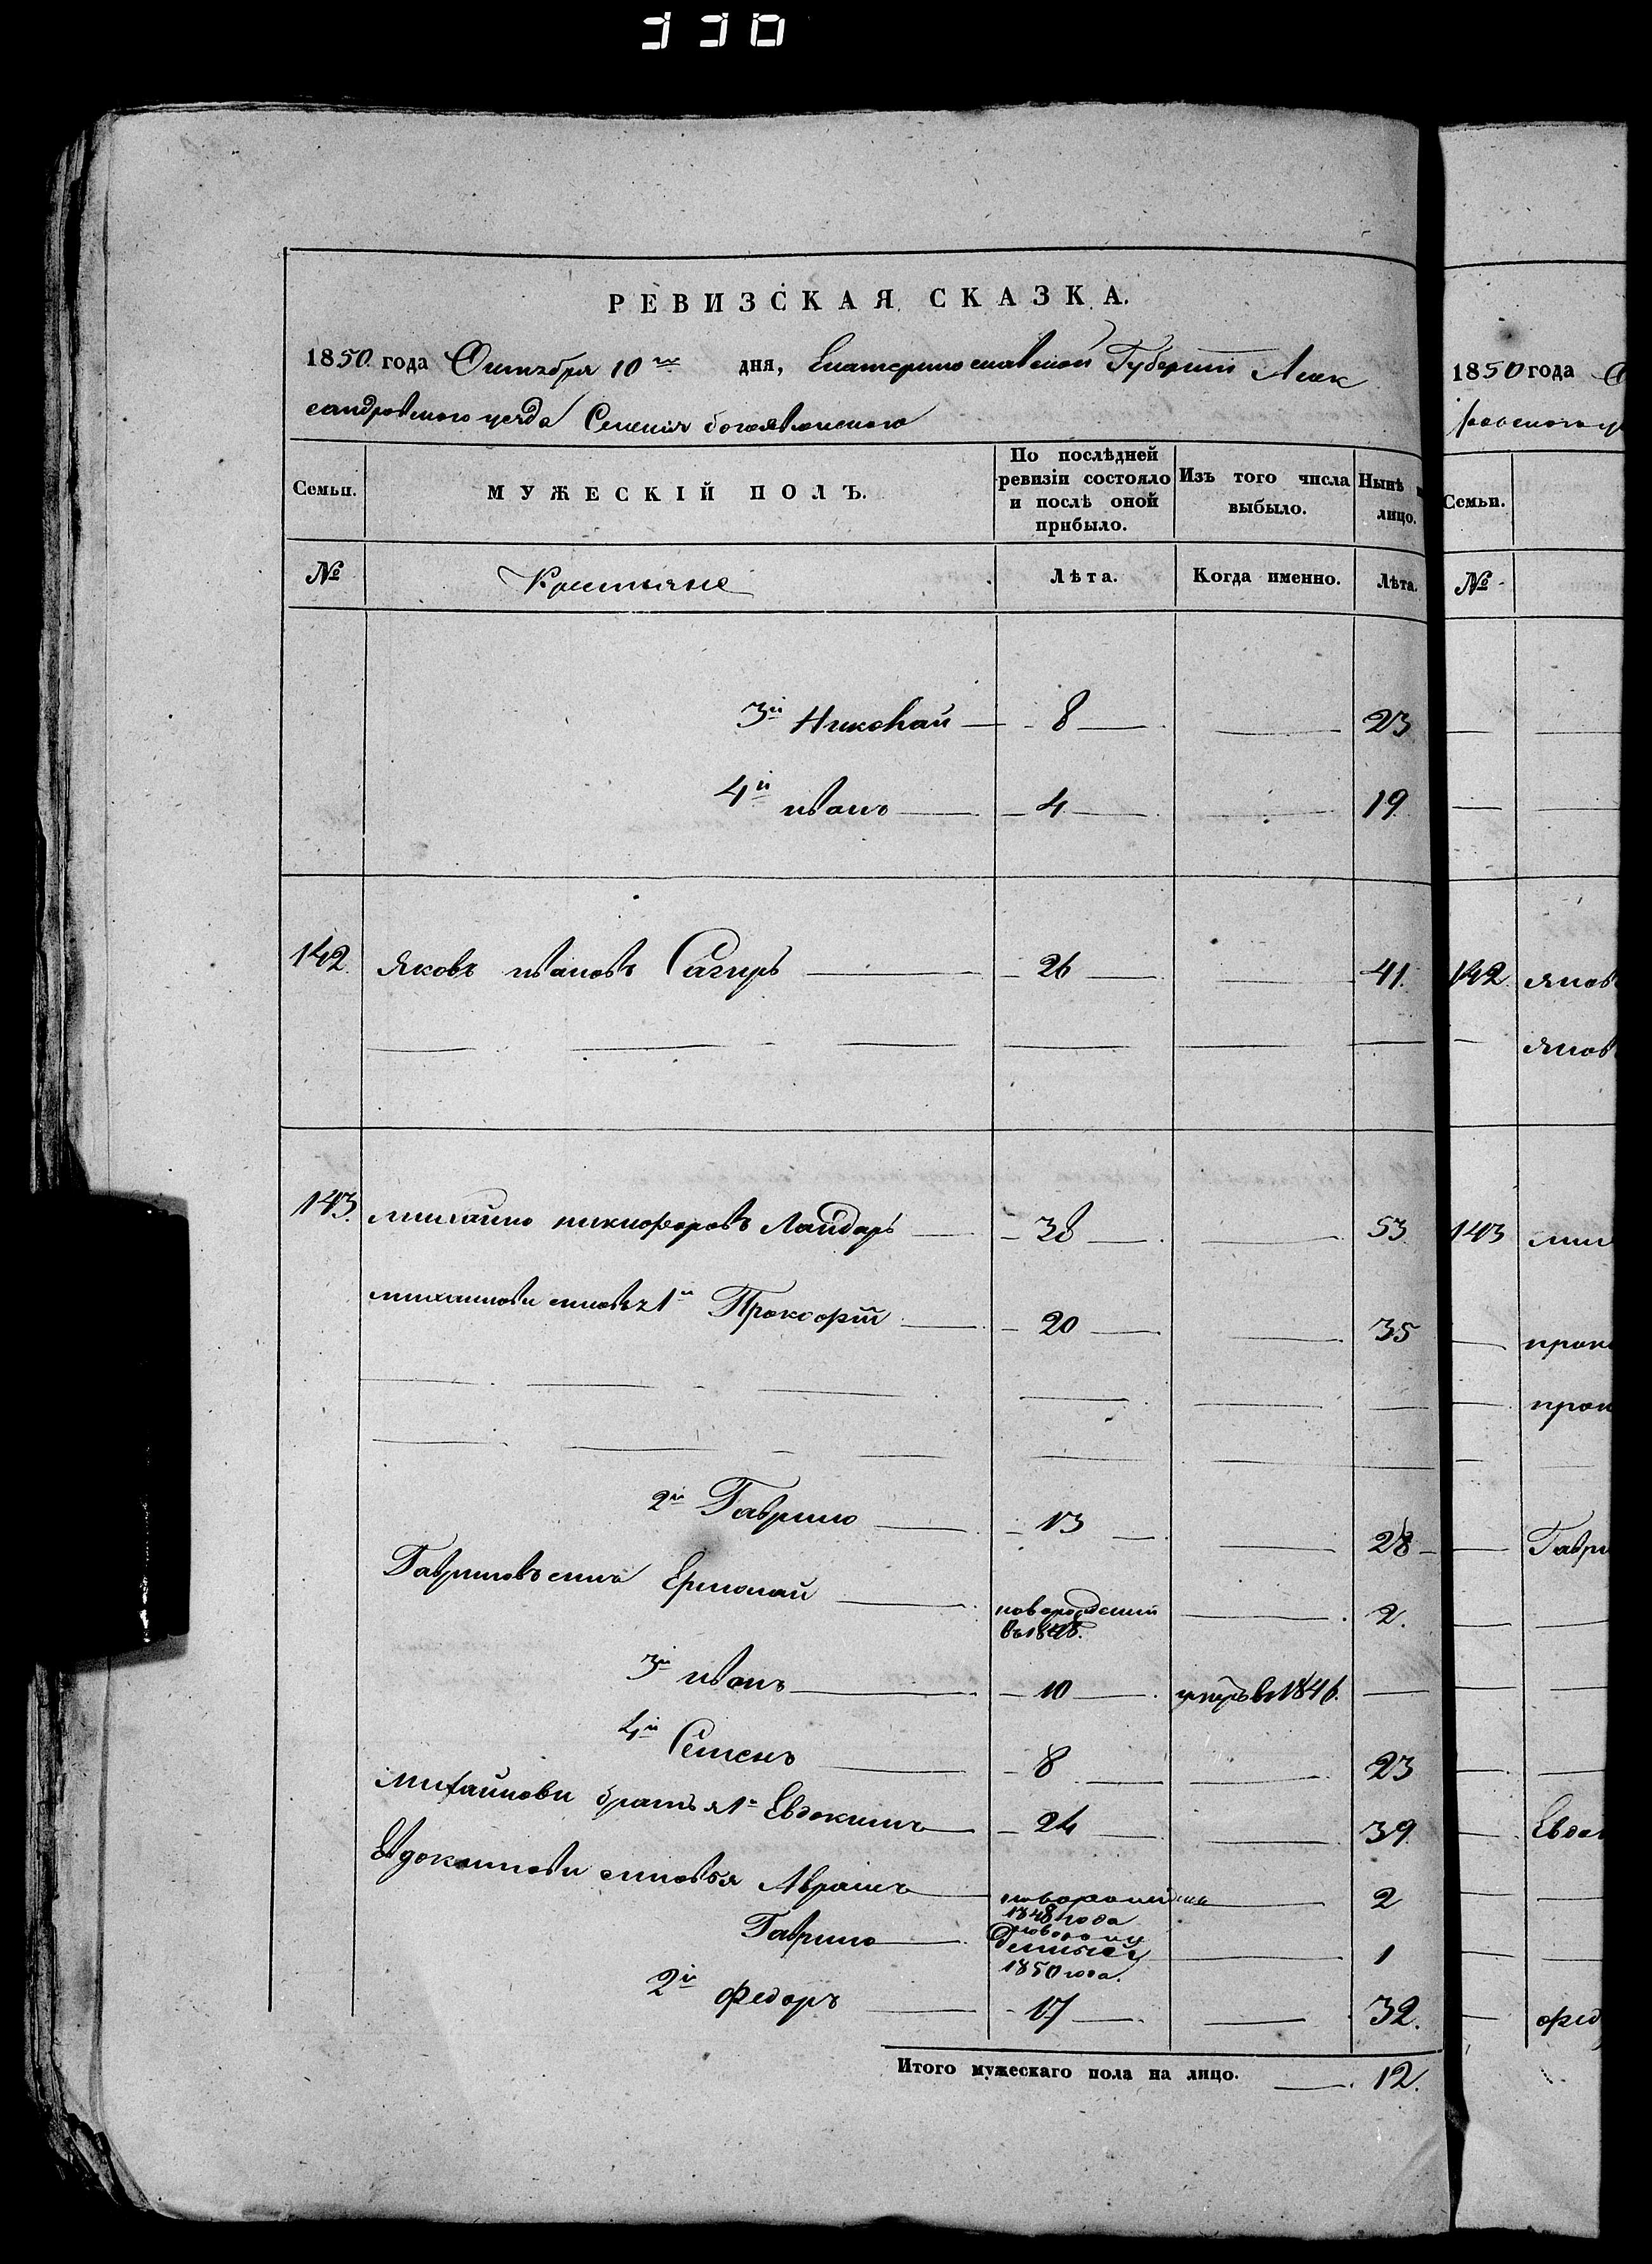 330
РЕВИЗСКАЯ СКАЗКА.
1850 года Октября 10го дня, Екатеринославской Губернiи Алек
сандровскаго уезда Селенiя богоявленскаго
Семьи. МУЖЕСКIЙ ПОЛЪ. По послѣдней ревизiи состояло и послѣ оной прибыло. Изъ того числа выбыло. Нынѣ лицо.
№ Крестьяне Лѣта. Когда именно. Лѣта.
3й Николай — 8 — — 23
4й иванъ — 4 — — 19
142. Яковъ ивановъ Сагиръ — 26 — — 41.
143. михайло никифоровъ Лайдарь — 38 — — 53
михайлови сыновья 1й Прокофiй — 20 — — 35
2й Гаврило — 13 — — 28
Гавриловъ сынъ Ермолай — новорожденый въ 1848. — 2.
3й иванъ — 10 — умеръ въ 1846. —
4й Семенъ — 8 — — 23
михайлови братья 1й Евдокимъ — 24 — — 39
Евдокимови сыновья Аврамъ — 1848 года — 2
Гаврило — 1850 года. — 1
2й федоръ — 17 — — 32.
Итого мужескаго пола на лицо. — 12.
1850 года
Семьи.
№
142 яков
яков
143 мих
проко
прок
Гаври
Евдок
фед